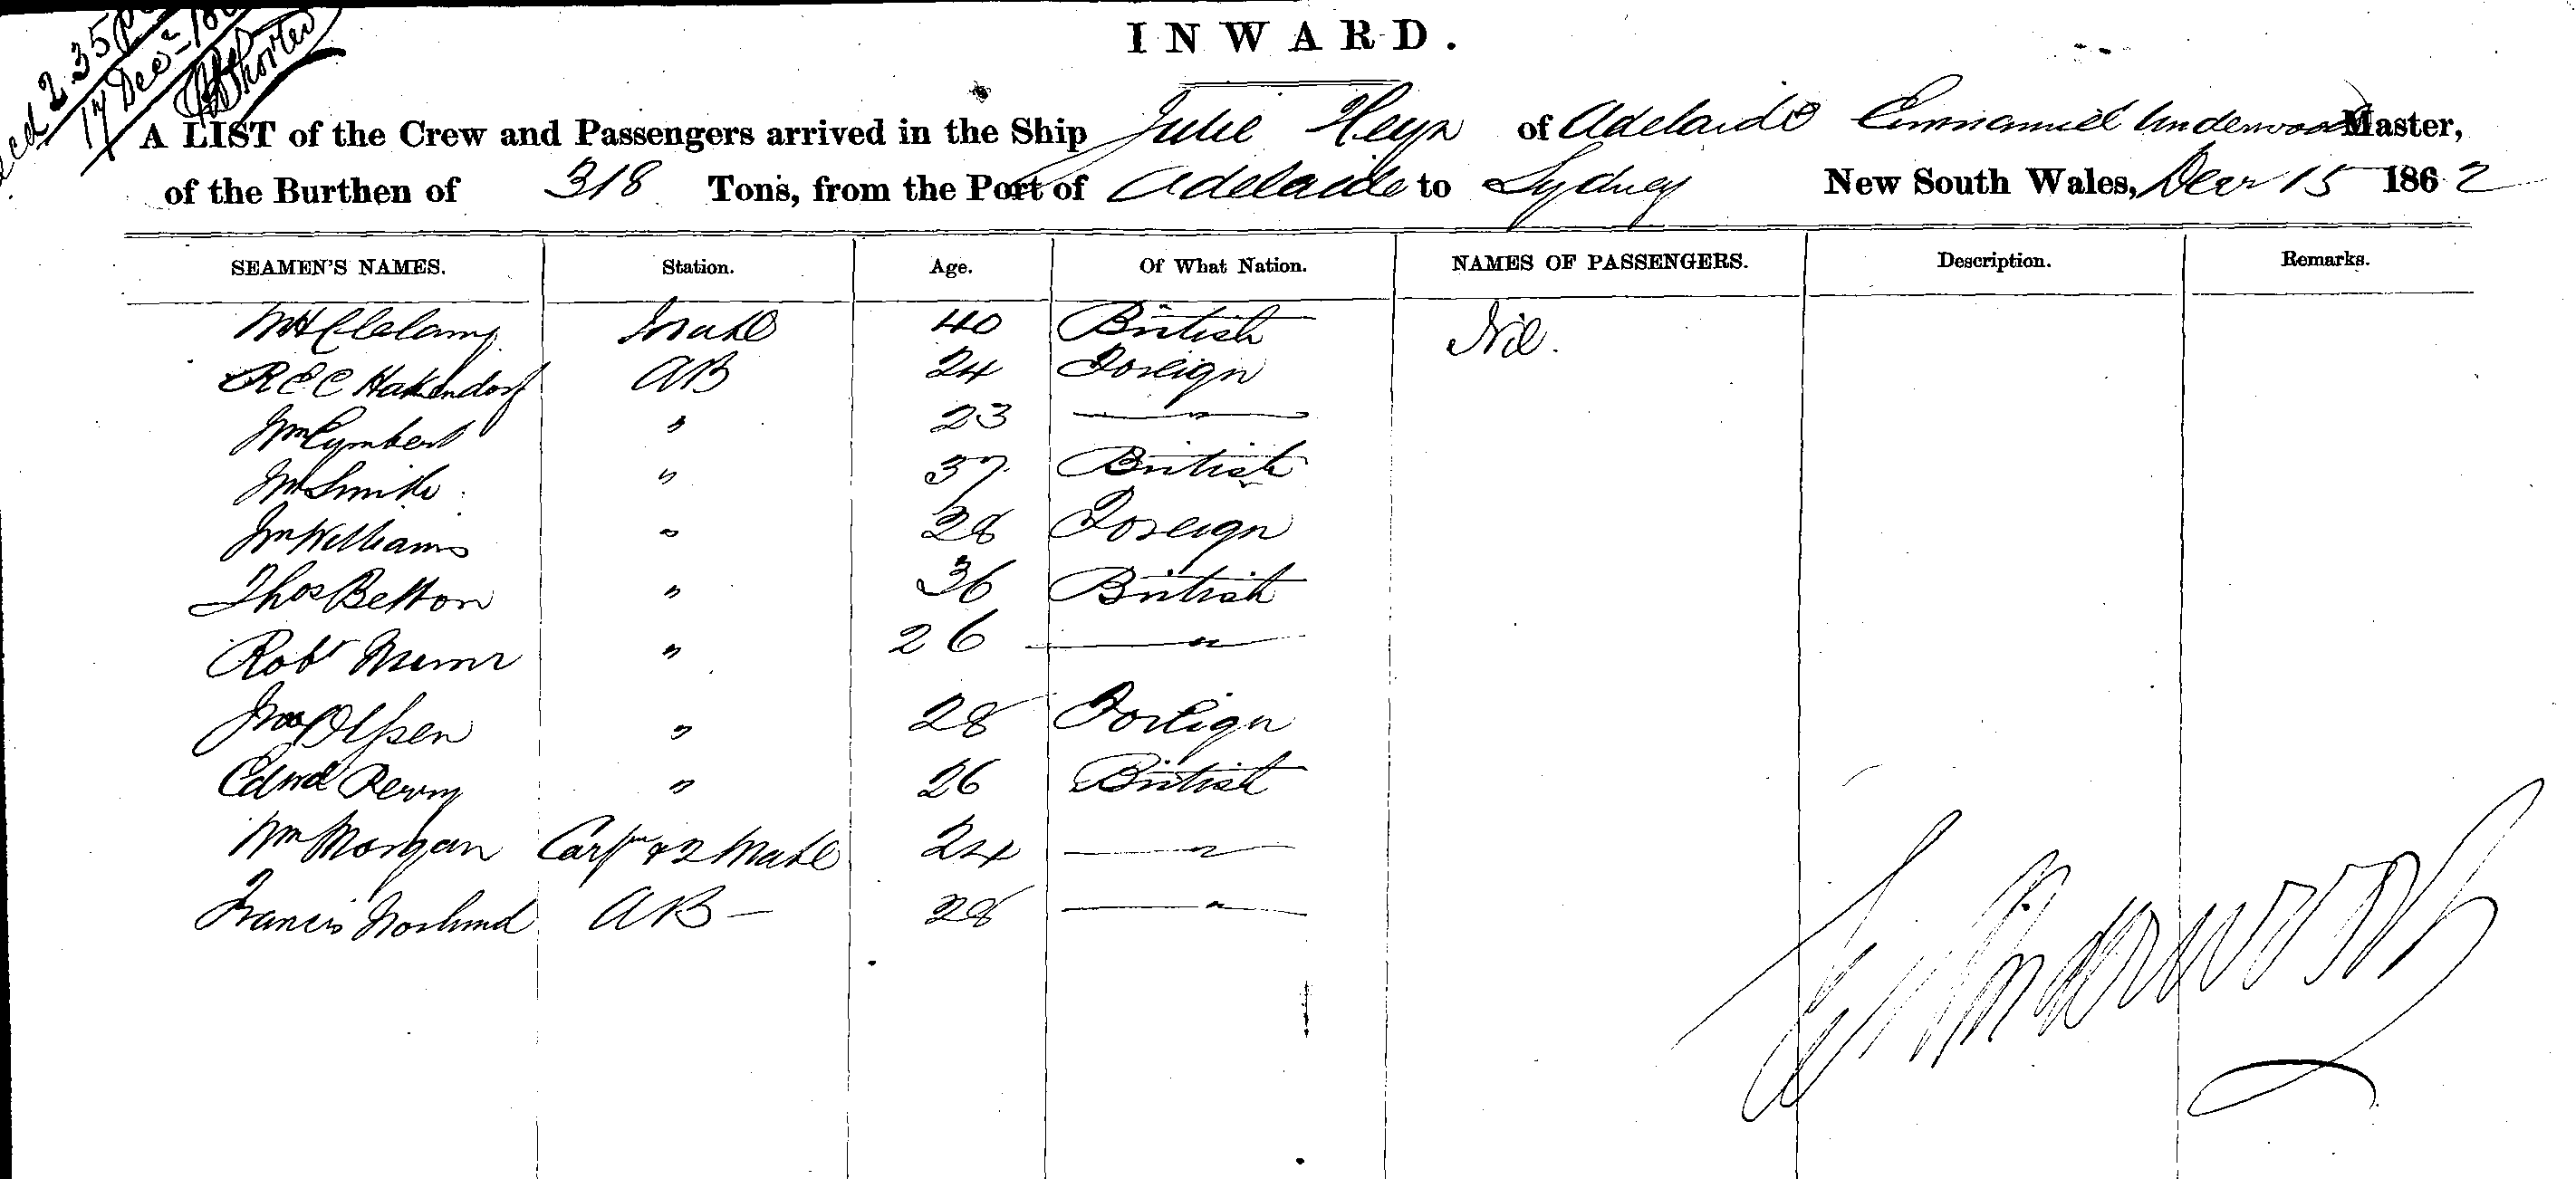 2.35
17 Decr
INWARD.
A LIST of the Crew and Passengers arrived in the Ship Julie Heyn of Adelaide Emmanuel Underwood Master,
of the Burthen of 318 Tons, from the Port of Adelaide to Sydney New South Wales, Decr 15 1862
SEAMEN'S NAMES. Station. Age. Of What Nation. NAMES OF PASSENGERS. Description. Remarks.
Mate 40 British Nil.
R E C Hakendorf AB 24 Foreign
Wm Cymbert " 23 — " —
Wm Smith " 37 British
Wm Williams " 28 Foreign
Thos Betton " 36 British
Robt " 26 — " —
Olssen " 28 Foreign
Edwd " 26 British
Wm Morgan Carpr & 2 Mate 24 — " —
Francis AB — 28 — " —
E Underwood